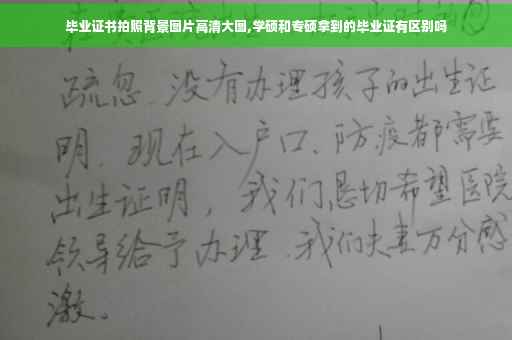 毕业证书拍照背景图片高清大图,学硕和专硕拿到的毕业证有区别吗
疏忽、没有办理孩子的出生证
明、现在入户口、防疫都需要
出生证明，我们恳切希望医院
领导给予办理、我们夫妻万分感
激。